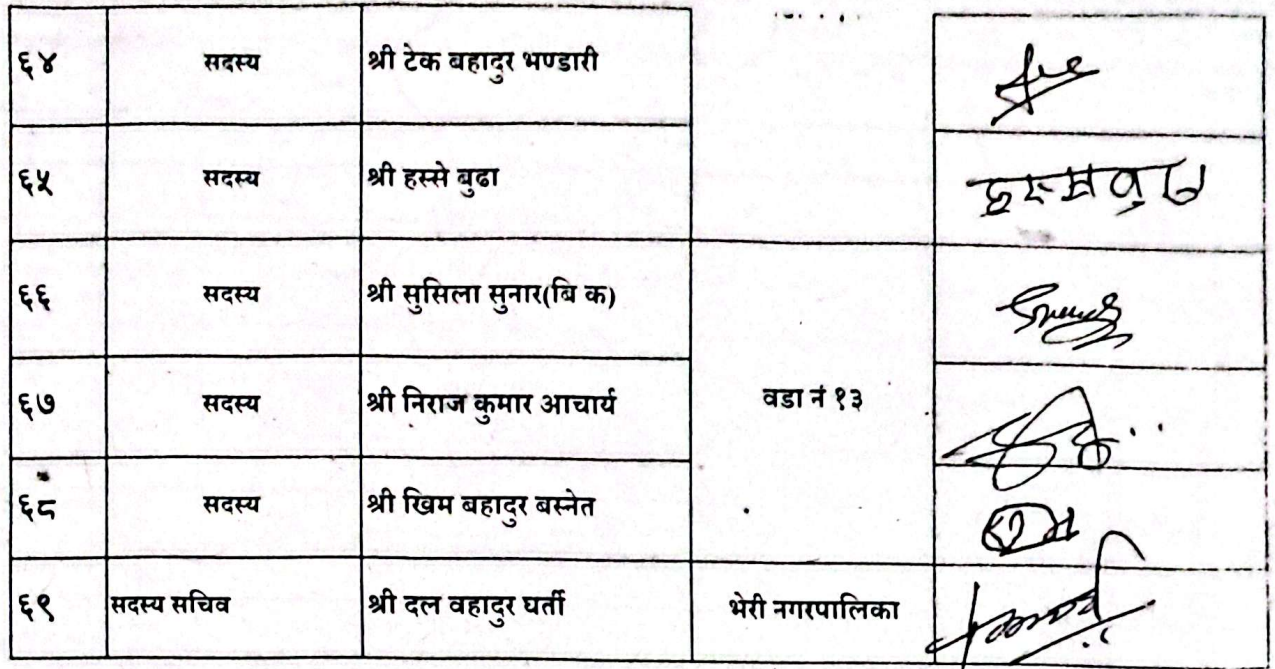 ६४ सदस्य श्री टेक बहादुर भण्डारी
६५ सदस्य श्री हस्से बुढा
६६ सदस्य श्री सुसिला सुनार(बि क)
६७ सदस्य श्री निराज कुमार आचार्य वडा नं १३
६८ सदस्य श्री खिम बहादुर बस्नेत
६९ सदस्य सचिव श्री दल वहादुर घर्ती भेरी नगरपालिका